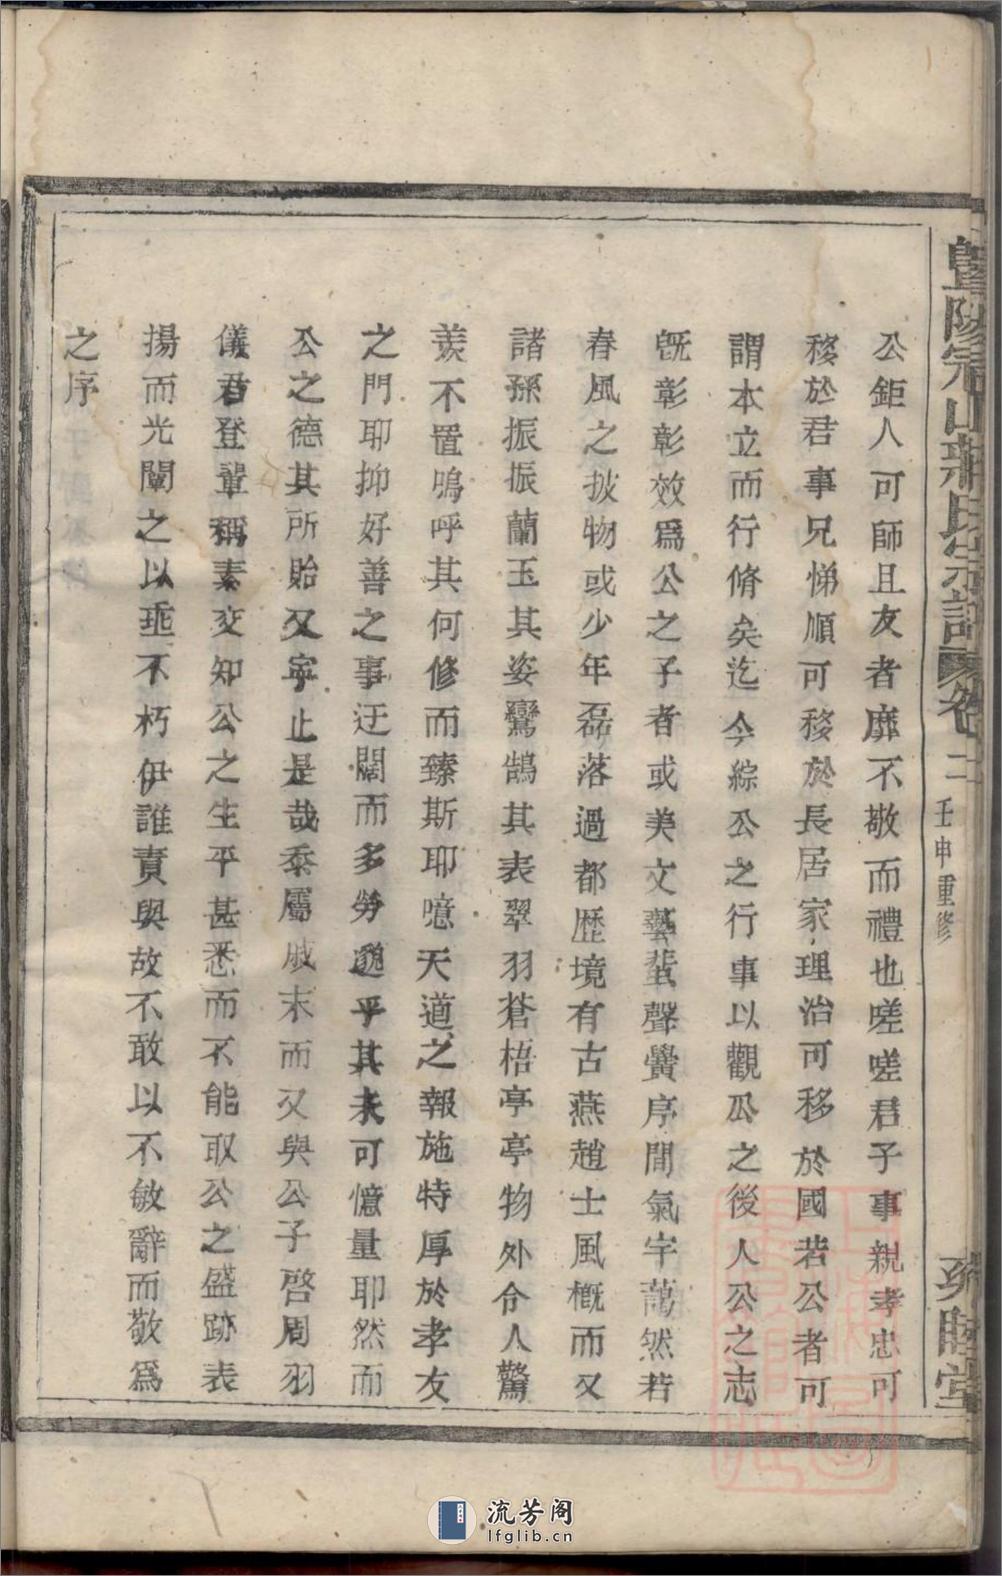 暨陽 山 氏宗譜 卷二 壬申重修 睦堂
公鉅人可師且友者靡不敬而禮也嗟嗟君子事親孝忠可
移於君事兄悌順可移於長居家理治可移於國若公者可
謂本立而行脩矣迄今綜公之行事以觀公之後人公之志
旣彰彰效爲公之子者或美文藝蜚聲黌序間氣宇藹然若
春風之披物或少年磊落過都歷境有古燕趙士風概而又
諸孫振振蘭玉其姿鸞鵠其表翠羽蒼梧亭亭物外令人驚
羨不置嗚呼其何修而臻斯耶噫天道之報施特厚於孝友
之門耶抑好善之事迂闊而多勞 乎其未可憶量耶然而
公之德其所貽又寧止是哉忝屬戚末而又與公子啓周羽
儀君登輩稱素交知公之生平甚悉而不能取公之盛跡表
揚而光闡之以垂不朽伊誰責與故不敢以不敏辭而敬爲
之序
流芳阁
lfglib.cn